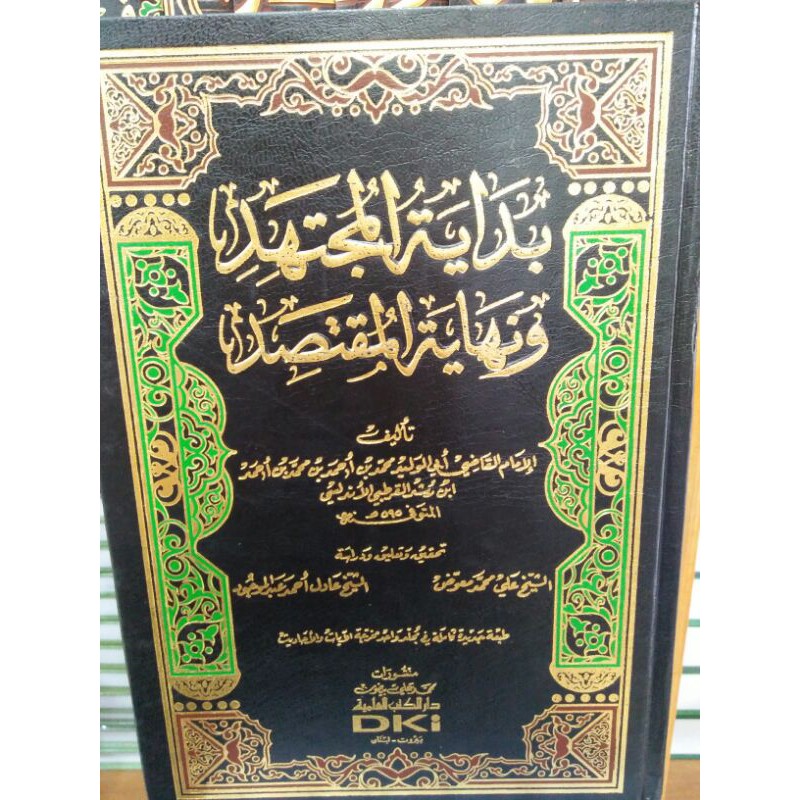 بداية المجتهد
ونهاية المقتصد
تأليف
الإمام القاضي أبي الوليد محمد بن أحمد بن محمد بن أحمد
ابن رشد القرطبي الأندلسي
المتوفى ٥٩٥ هـ
تحقيق وتعليق ودراسة
الشيخ علي محمد معوض الشيخ عادل أحمد عبد الموجود
طبعة جديدة كاملة في مجلد واحد مخرجة الآيات والأحاديث
منشورات
محمد علي بيضون
دار الكتب العلمية
DKi
بيروت - لبنان